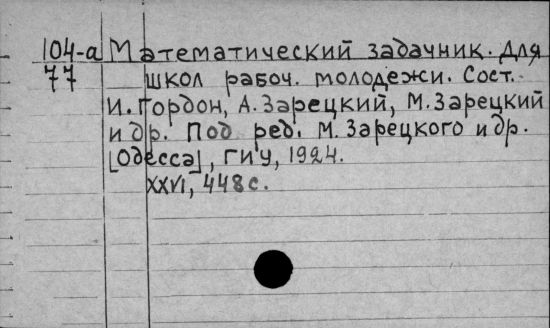 104-а Математический задачник. Для
77 школ рабоч. молодежи. Сост.
И. Гордон, А. Зарецкий, М. Зарецкий
и др. Под ред. М. Зарецкого и др.
[Одесса], ГИУ, 1924.
XXVI, 448 с.